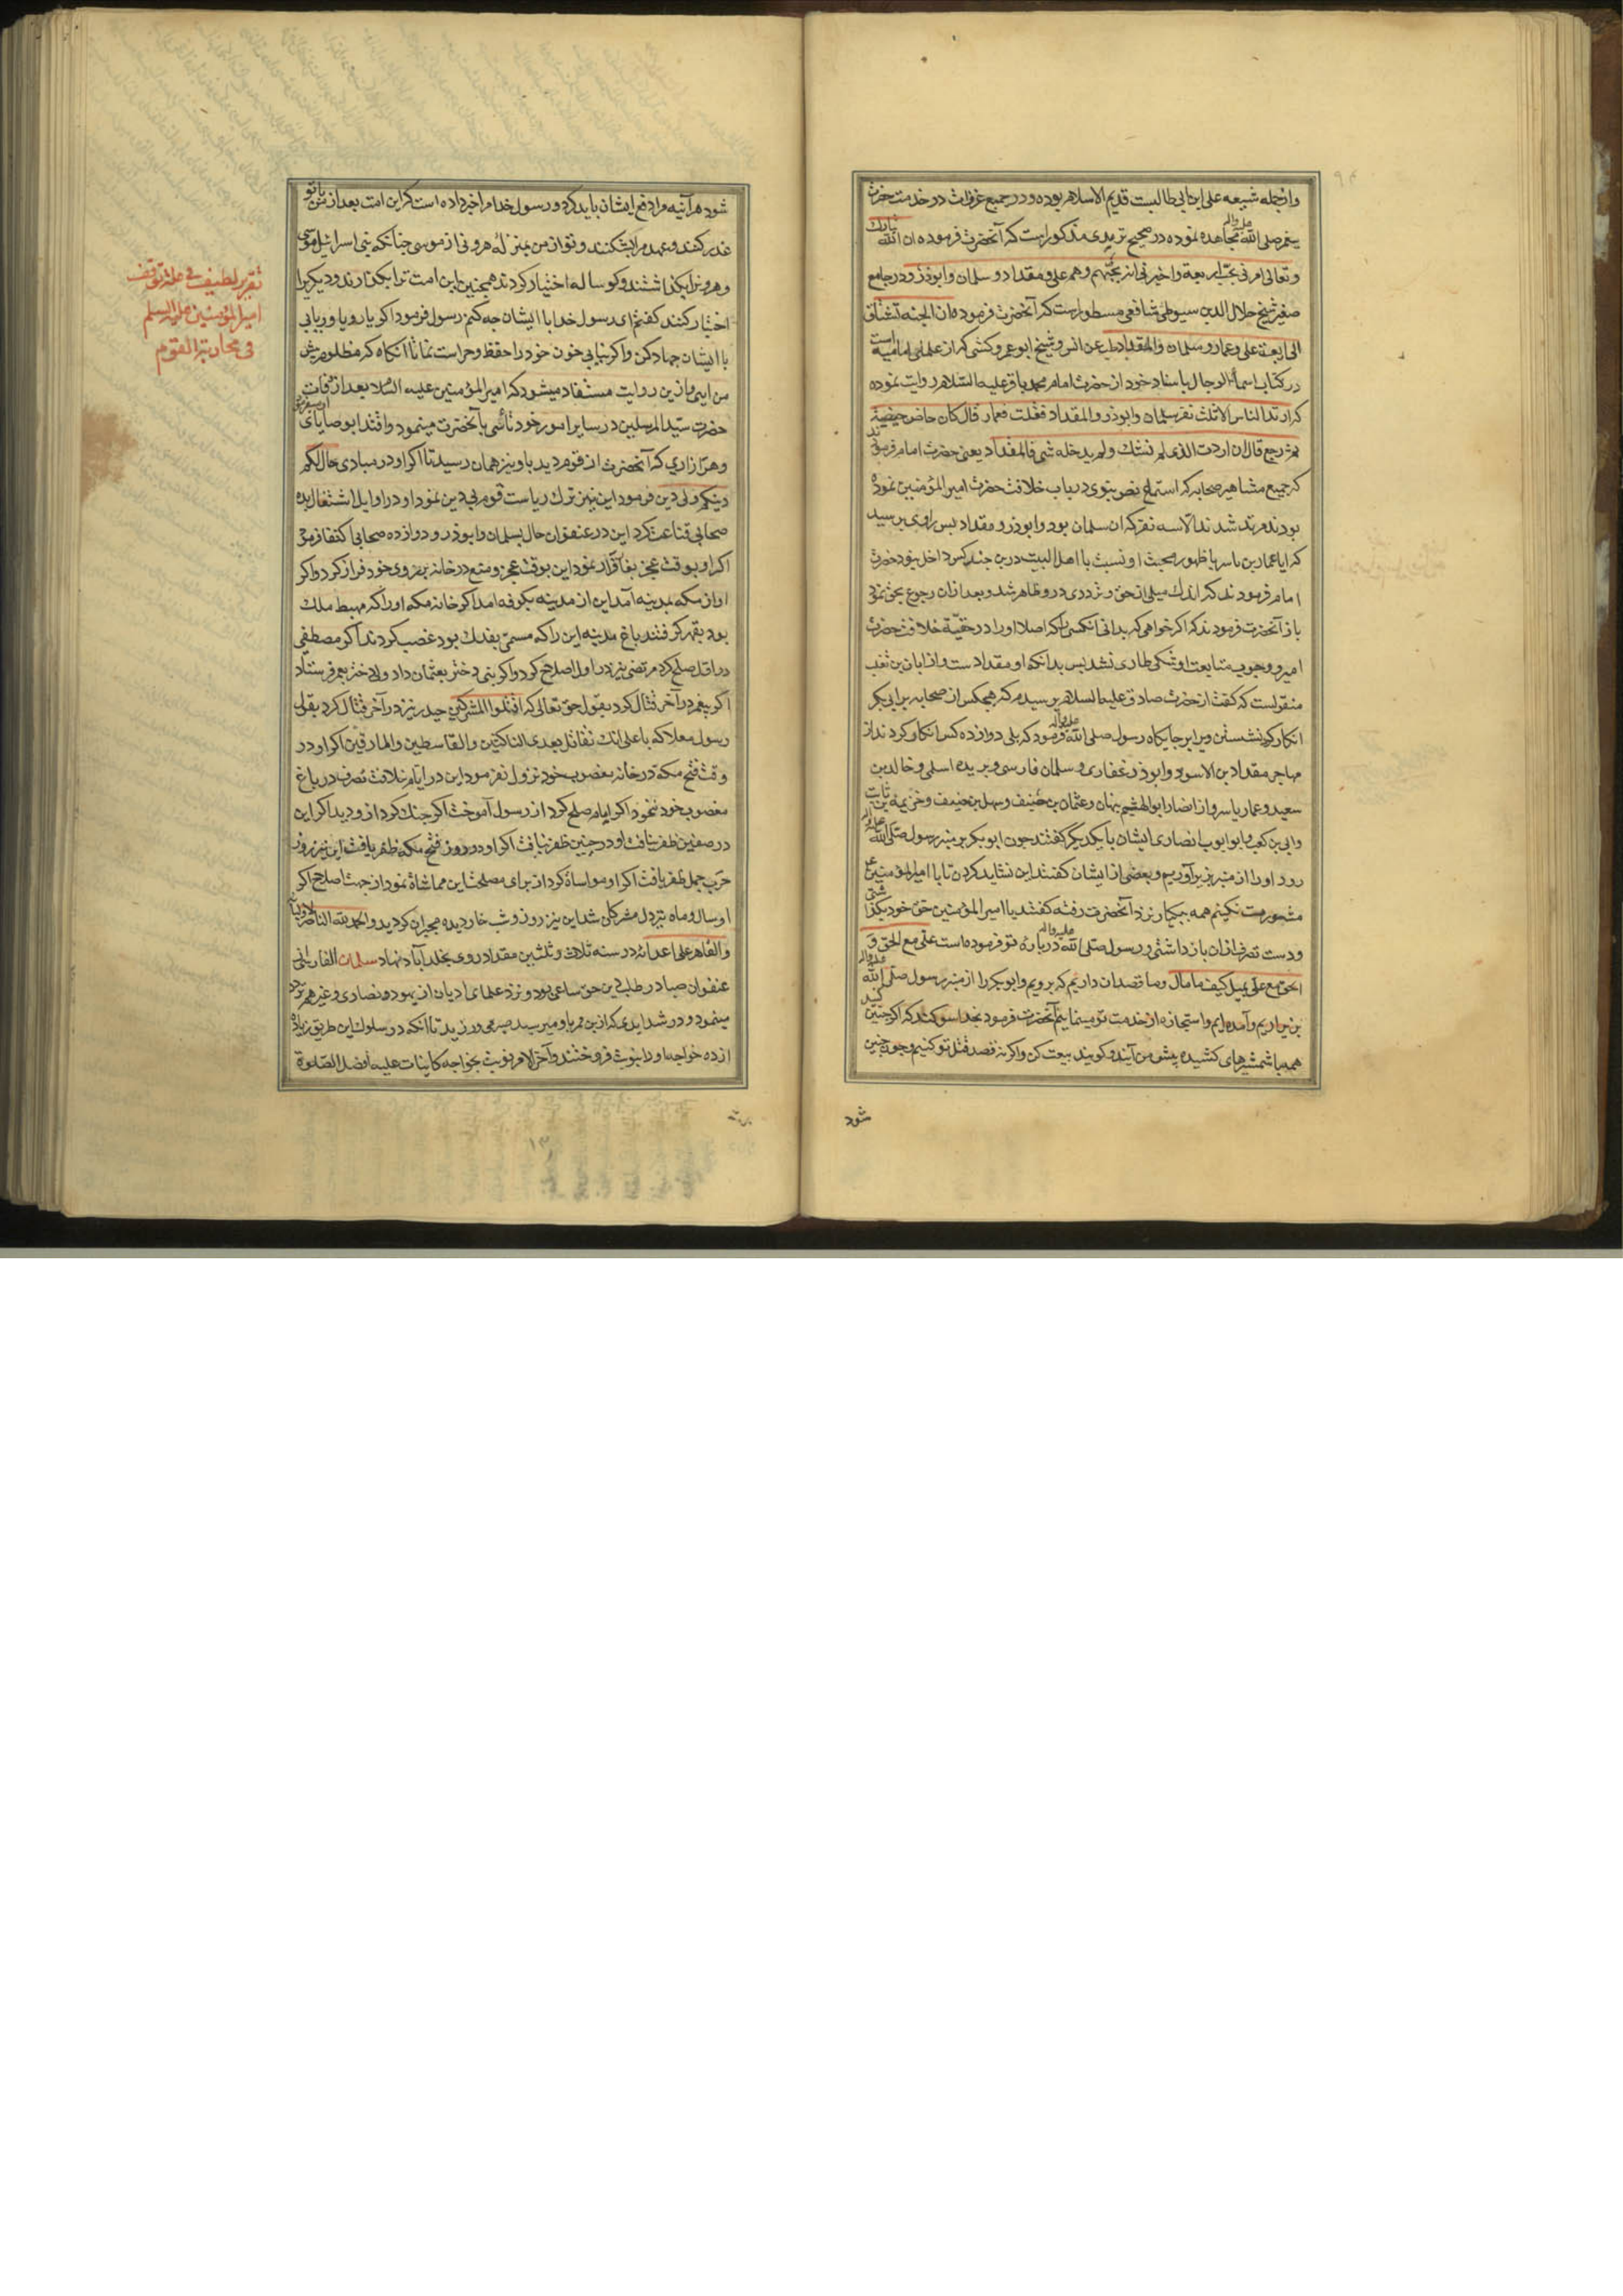 وازجمله شیعه علی ابن ابی طالبست قدیم الاسلام بوده و در جمیع غزوات در خدمت حضرت
پیغمبر صلی الله علیه واله مجاهده نموده در صحیح ترمذی مذکور است که آنحضرت فرموده ان الله تبارک
و تعالی امرنی بحب اربعة واخبرنی انه یحبهم وهم علی ومقداد و سلمان وابوذر و در جامع
صغیر شیخ جلال الدین سیوطی شافعی مسطور است که آنحضرت فرموده ان الجنه تشتاق
الی اربعة علی وعمار و سلمان والمقداد طب عن انس و شیخ ابو عمرو کشی که از علمای امامیه است
در کتاب اسماء الرجال باسناد خود از حضرت امام محمد باقر علیه السلام روایت نموده
که ارتد الناس الا ثلث نفر سلمان وابوذر والمقداد فقلت فعمار قال کان حاض حیضة
ثم رجع قال ان اردت الذی لم یشک ولم یدخله شی فالمقداد یعنی حضرت امام فرمودند
که جمیع مشاهیر صحابه که استماع نص نبوی در باب خلافت حضرت امیر المؤمنین نموده
بودند مرتد شدند الا سه نفر که ان سلمان بود وابوذر و مقداد پس راوی پرسید
که ایا عمار بن یاسر با ظهور محبت او نسبت با اهل البیت درین چند کس داخل نبود حضرت
امام فرمودند که اندک میلی از حق و ترددی درو ظاهر شد و بعد ازان رجوع بحق نمود
باز آنحضرت فرمودند که اکر خواهی که بدانی آنکسی را که اصلا اورا در حقیة خلافت حضرت
امیر و وجوب متابعت او شکی طاری نشد پس بدانکه او مقداد است واز ابان بن تغلب
منقولست که کفت از حضرت صادق علیه السلام پرسیدم که هیچکس از صحابه بر ابی بکر
انکار کرد نشستن ویرا بر جایکاه رسول صلی الله علیه واله فرمود که بلی دوازده کس انکار کردند از
مهاجر مقداد بن الاسود وابوذر غفاری و سلمان فارسی و بریده اسلمی و خالد بن
سعید و عمار یاسر و از انصار ابو الهشیم بنهان و عثمان بن حنیف و سهل بن حنیف و خزیمه بن ثابت
وابی بن کعب وابو ایوب انصاری ایشان بایکدیکر کفتند چون ابو بکر بر منبر رسول صلی الله علیه واله
رود اورا از منبر بزیر آوریم و بعضی از ایشان کفتند این نشاید کردن تا با امیر المؤمنین
مشورت نکنیم همه بیکبار نزد آنحضرت رفته کفتند یا امیر المؤمنین حق خود بکذاشتی
و دست تصرف ازان بازداشتی و رسول صلی الله علیه واله درباره تو فرموده است علی مع الحق و
الحق مع علی یمیل کیف ما مال وما قصد ان داریم که برویم وابو بکر را از منبر رسول صلی الله علیه واله
بزیر اریم وآمده ایم واستجازه از خدمت تو مینماییم آنحضرت فرمود بخدا سوکند که اکر چنین کنید
همه با شمشیرهای کشیده پیش من آیند و کویند بیعت کن واکر نه قصد قتل تو کنیم و چون چنین
شود
شود هر آینه مرا دفع ایشان باید کرد و رسول خدا مرا خبر داده است که این امت بعد از من با تو
غدر کنند و عهد مرا بشکنند و تو از من بمنزله هرونی از موسی چنانکه بنی اسرائیل موسی
و هرونرا بکذاشتند و کوساله اختیار کردند همچنین این امت ترا بکذارند و دیکریرا
اختیار کنند کفتم ای رسول خدا با ایشان چه کنم رسول فرمود اکر یار و یاور یابی
با ایشان جهاد کن واکر نیابی خون خود را حفظ و حراست نما تا آنکاه که مظلوم پیش
من ایی وازین روایت مستفاد میشود که امیر المؤمنین علیه السلام بعد از وفات
حضرت سید المرسلین در سایر امور خود تأسی بآنحضرت مینمود واقتدا بوصایای او میفرمود
و هر آزاری که آنحضرت از قوم دید باو نیز همان رسید تا اکر او در مبادی حال لکم
دینکم ولی دین فرمود این نیز ترک ریاست قوم بی دین نمود او در اوایل اشتغال بده
صحابی قناعت کرد این در عنفوان حال بسلمان وابوذر و دوازده صحابی اکتفا فرمود
اکر او بوقت عجز بغار قرار نمود این بوقت عجز و منع در خانه بر روی خود فراز کرد واکر
او از مکه بمدینه آمد این از مدینه بکوفه امد اکر خانه مکه اورا که مهبط ملک
بود بقهر کرفتند باغ مدینه این را که مسمی بفدک بود غصب کردند اکر مصطفی
در اول صلح کرد مرتضی نیز در اول اصلاح کرد واکر نبی دختر بعثمان داد ولی دختر بعمر فرستاد
اکر پیغمبر در آخر قتال کرد بقول حق تعالی که اقتلوا المشرکین حیدر نیز در آخر قتال کرد بقول
رسول معلا که یا علی انک تقاتل بعدی الناکثین والقاسطین والمارقین اکر او در
وقت فتح مکه در خانه مغصوب خود نزول نفرمود این در ایام خلافت تصرف در باغ
مغصوب خود ننمود اکر امام صلح کرد از رسول آموخت اکر جنک کرد ازو دید اکر این
در صفین ظفر نیافت او در حنین ظفر نیافت اکر او در روز فتح مکه ظفر یافت این نیز روز
حرب جمل ظفر یافت اکر او مواساة کرد از برای مصلحت این مماشاة نمود از جهت اصلاح اکر
او سال و ماه تیر دل مشرکان شد این نیز روز و شب خار دیده مجبران کردید والحمد لله الناصر لاولیائه
والقاهر علی اعدائه در سنه ثلاث و ثلثین مقداد روی بخلد آباد نهاد سلمان الفارسی از
عنفوان صبا در طلب دین حق ساعی بود و نزد علمای ادیان از یهود و نصاری و غیرهم تردد
مینمود و در شدایدی که ازین ممر باو میرسید صبر می ورزید تا آنکه در سلوک این طریق زیاده
از ده خواجه اورا بنوبت فروختند وآخر الامر نوبت بخواجه کاینات علیه افضل الصلوة
تقریر لطیف فی علة توقف
امیر المؤمنین علیه السلم
فی محاربة القوم